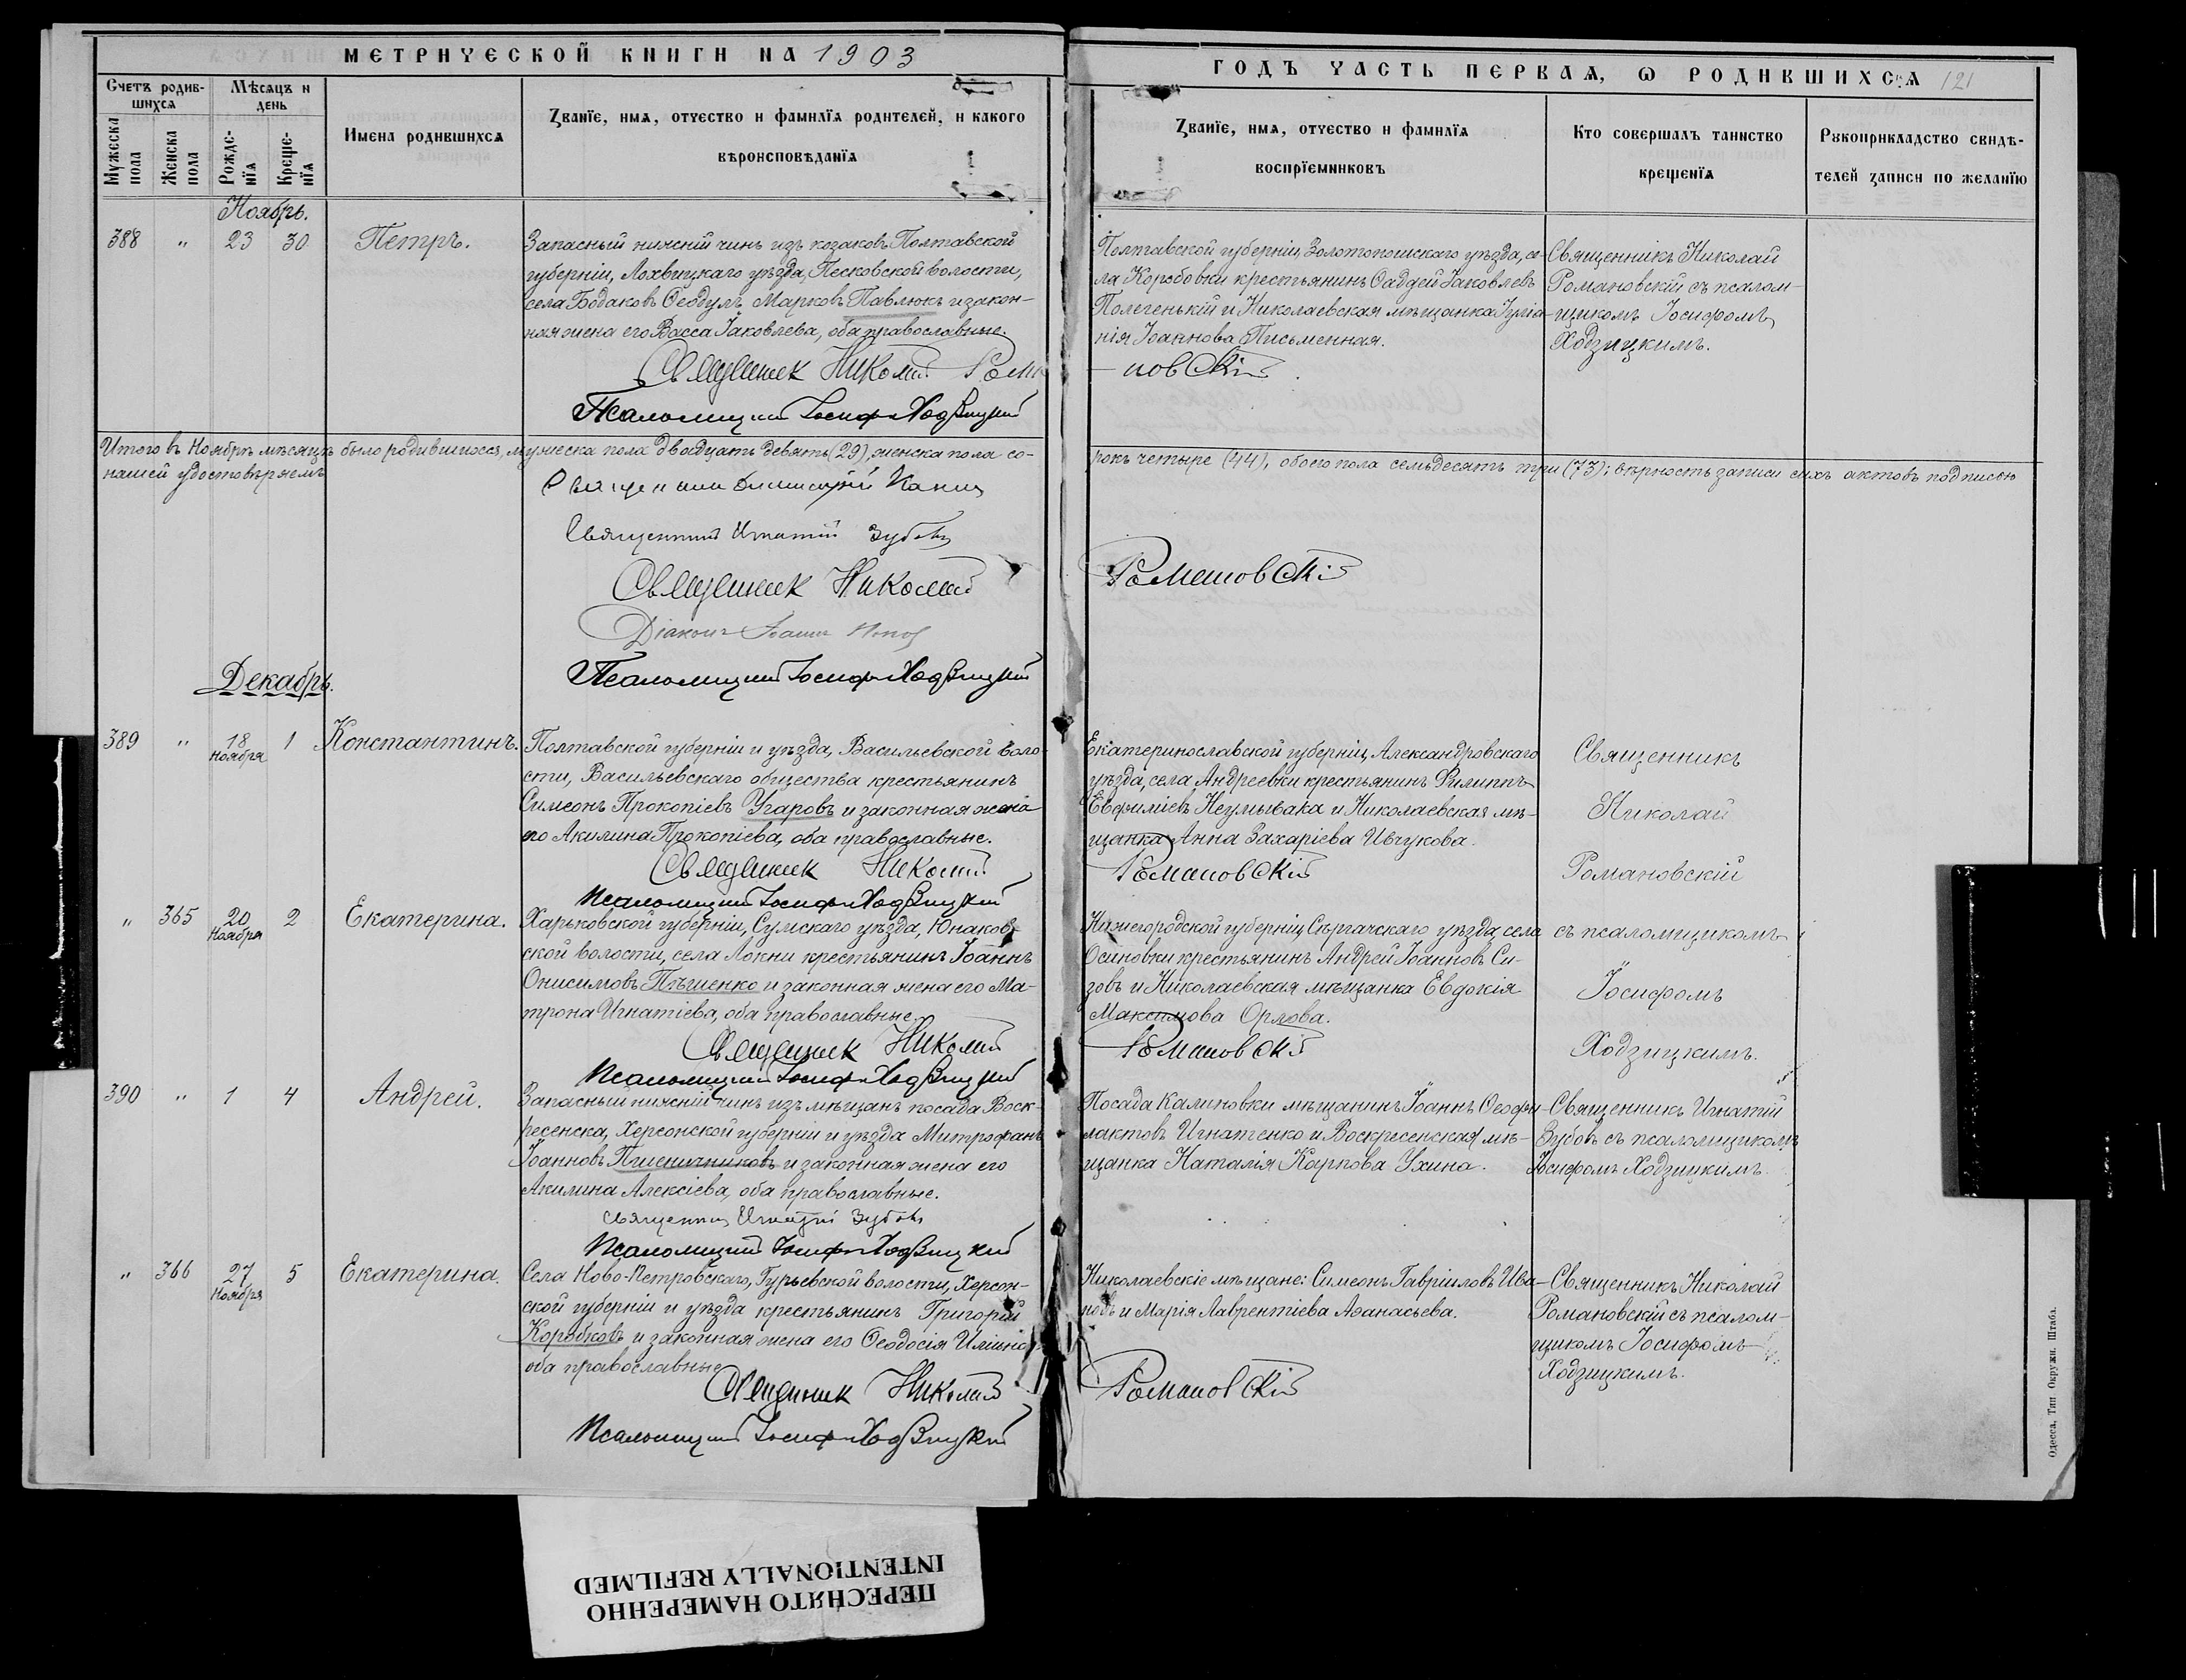 МЕТРИЧЕСКОЙ КНИГИ НА 1903
ГОДЪ ЧАСТЬ ПЕРВАЯ, Ѡ РОДИВШИХСЯ 121
Счетъ родив-
шихся
Мужеска пола
Женска пола
Мѣсяцъ и
день
Рожде-
нїя
Креще-
нїя
Имена родившихся
Званїе, имя, отчество и фамилїя родителей, и какого
вѣроисповѣданїя
Званїе, имя, отчество и фамилїя
воспрїемниковъ
Кто совершалъ таинство
крещенїя
Рукоприкладство свидѣ-
телей записи по желанїю
Ноябрь.
388 „ 23 30 Петръ.
Запасный нижній чинъ изъ козаковъ Полтавской
губерніи, Лохвицкаго уѣзда, Песковской волости,
села Бодаковъ Ѳеодулъ Марковъ Павлюкъ и закон-
ная жена его Васса Іаковлева, оба православные.
Полтавской губерніи, Золотоношскаго уѣзда, се-
ла Коробовки крестьянинъ Ѳаддей Іаковлевъ
Полегенькій и Николаевская мѣщанка Іуліа-
нія Іоаннова Письменная.
Священникъ Николай
Романовскій съ псалом-
щикомъ Іосифомъ
Ходзицкимъ.
Священник Николай Рома-
новскій
Псаломщикъ Іосифъ Ходзицкій
Итого въ Ноябрѣ мѣсяцѣ было родившихся, мужеска пола двадцать девять (29), женска пола со-
рокъ четыре (44), обоего пола семьдесятъ три (73); вѣрность записи сихъ актовъ подписью
нашей удостовѣряемъ
Священникъ Игнатій Зубовъ
Священник Николай
Романовскій
Діаконъ Іоаннъ Попов
Псаломщикъ Іосифъ Ходзицкій
Декабрь.
389 „ 18 ноября 1 Константинъ.
Полтавской губерніи и уѣзда, Васильевской воло-
сти, Васильевскаго общества крестьянинъ
Симеонъ Прокопіевъ Угаровъ и законная жена
его Акилина Прокопіева, оба православные.
Екатеринославской губерніи, Александровскаго
уѣзда, села Андреевки крестьянинъ Филиппъ
Евфиміевъ Неумывака и Николаевская мѣ-
щанка Анна Захаріева Ивчукова.
Священникъ
Николай
Романовскій
Священник Николай
Романовскій
Псаломщикъ Іосифъ Ходзицкій
„ 365 20 Ноября 2 Екатерина.
Харьковской губерніи, Сумскаго уѣзда, Юнаков-
ской волости, села Локни крестьянинъ Іоаннъ
Онисимовъ Пѣшенко и законная жена его Ма-
трона Игнатіева, оба православные.
Нижегородской губерніи, Сѣргачскаго уѣзда, села
Осиновки крестьянинъ Андрей Іоанновъ Си-
зовъ и Николаевская мѣщанка Евдокія
Максимова Орлова.
съ псаломщикомъ
Іосифомъ
Ходзицкимъ.
Священник Николай
Романовскій
Псаломщикъ Іосифъ Ходзицкій
390 „ 1 4 Андрей.
Запасный нижній чинъ изъ мѣщанъ посада Воск-
ресенска, Херсонской губерніи и уѣзда Митрофанъ
Іоанновъ Пшеничниковъ и законная жена его
Акилина Алексіева, оба православные.
Посада Калиновки мѣщанинъ Іоаннъ Ѳеофи-
лактовъ Игнатенко и Воскресенская мѣ-
щанка Наталія Карпова Ухина.
Священникъ Игнатій
Зубовъ съ псаломщикомъ
Іосифомъ Ходзицкимъ.
Священникъ Игнатій Зубовъ
Псаломщикъ Іосифъ Ходзицкій
„ 366 27 Ноября 5 Екатерина.
Села Ново-Петровскаго, Гурьевской волости, Херсон-
ской губерніи и уѣзда крестьянинъ Григорій
Коробковъ и законная жена его Ѳеодосія Иліина,
оба православные
Николаевскіе мѣщане: Симеонъ Гавріиловъ Ива-
новъ и Марія Лаврентіева Аѳанасьева.
Священникъ Николай
Романовскій съ псалом-
щикомъ Іосифомъ
Ходзицкимъ.
Священник Николай
Романовскій
Псаломщикъ Іосифъ Ходзицкій
Одесса, Тип. Окружн. Штаба.
ПЕРЕСНЯТО НАМЕРЕННО
INTENTIONALLY REFILMED